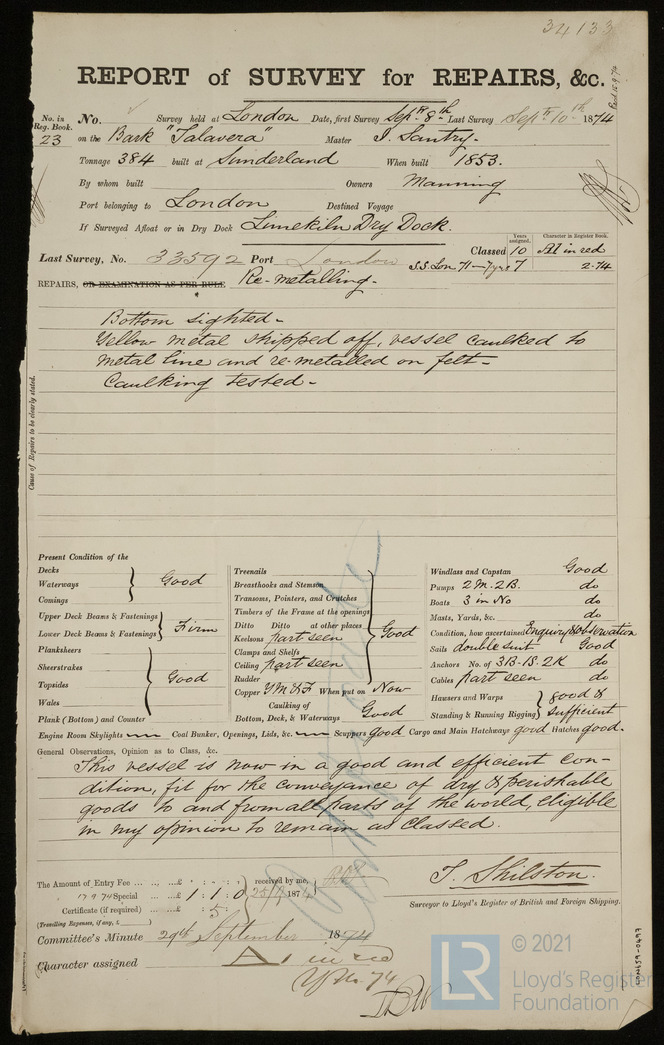 34133
REPORT of SURVEY for REPAIRS, &c.
No. in Reg. Book.
23
No. Survey held at London Date, first Survey Sept 8th Last Survey Sept 10th 1874
on the Bark "Talavera" Master J. Santry.
Tonnage 384 built at Sunderland When built 1853.
By whom built Owners Manning
Port belonging to London Destined Voyage
If Surveyed Afloat or in Dry Dock Limekiln Dry Dock.
Years assigned. Character in Register Book.
Last Survey, No. 33592 Port London Classed 10 A1 in red
S.S. Lon 71-7yrs 7 2.74
REPAIRS, OR EXAMINATION AS PER RULE Re-metalling.
Cause of Repairs to be clearly stated.
Bottom sighted-
Yellow metal stripped off, vessel caulked to
metal line and re-metalled on felt-
Caulking tested-
Present Condition of the
Decks
Waterways
Comings
Good
Upper Deck Beams & Fastenings
Lower Deck Beams & Fastenings
Firm
Planksheers
Sheerstrakes
Topsides
Wales
Good
Plank (Bottom) and Counter
Treenails
Breasthooks and Stemson
Transoms, Pointers, and Crutches
Timbers of the Frame at the openings
Ditto Ditto at other places
Keelsons part seen
Clamps and Shelfs
Ceiling part seen
Rudder
Good
Copper YM & F When put on Now
Caulking of
Bottom, Deck, & Waterways Good
Windlass and Capstan Good
Pumps 2 M. 2 B. do
Boats 3 in No do
Masts, Yards, &c. do
Condition, how ascertained Enquiry & Observation
Sails double suit Good
Anchors No. of 3B. 1S. 2K do
Cables part seen do
Hawsers and Warps
Standing & Running Rigging
good & sufficient
Engine Room Skylights Coal Bunker, Openings, Lids, &c. Scuppers good Cargo and Main Hatchways good Hatches good.
General Observations, Opinion as to Class, &c.
This vessel is now in a good and efficient con-
dition, fit for the conveyance of dry & perishable
goods to and from all parts of the world, eligible
in my opinion to remain as classed.
The Amount of Entry Fee ... £ : :
Special ... £ 1 : 1 : 0
Certificate (if required) ... £ : 5 :
(Travelling Expenses, if any, £ )
received by me,
25/9 1874
T. Shilston.
Surveyor to Lloyd's Register of British and Foreign Shipping.
Committee's Minute 29th September 1874
Character assigned A1 in red
YM. 74
LON459-0497
LR
© 2021
Lloyd's Register
Foundation